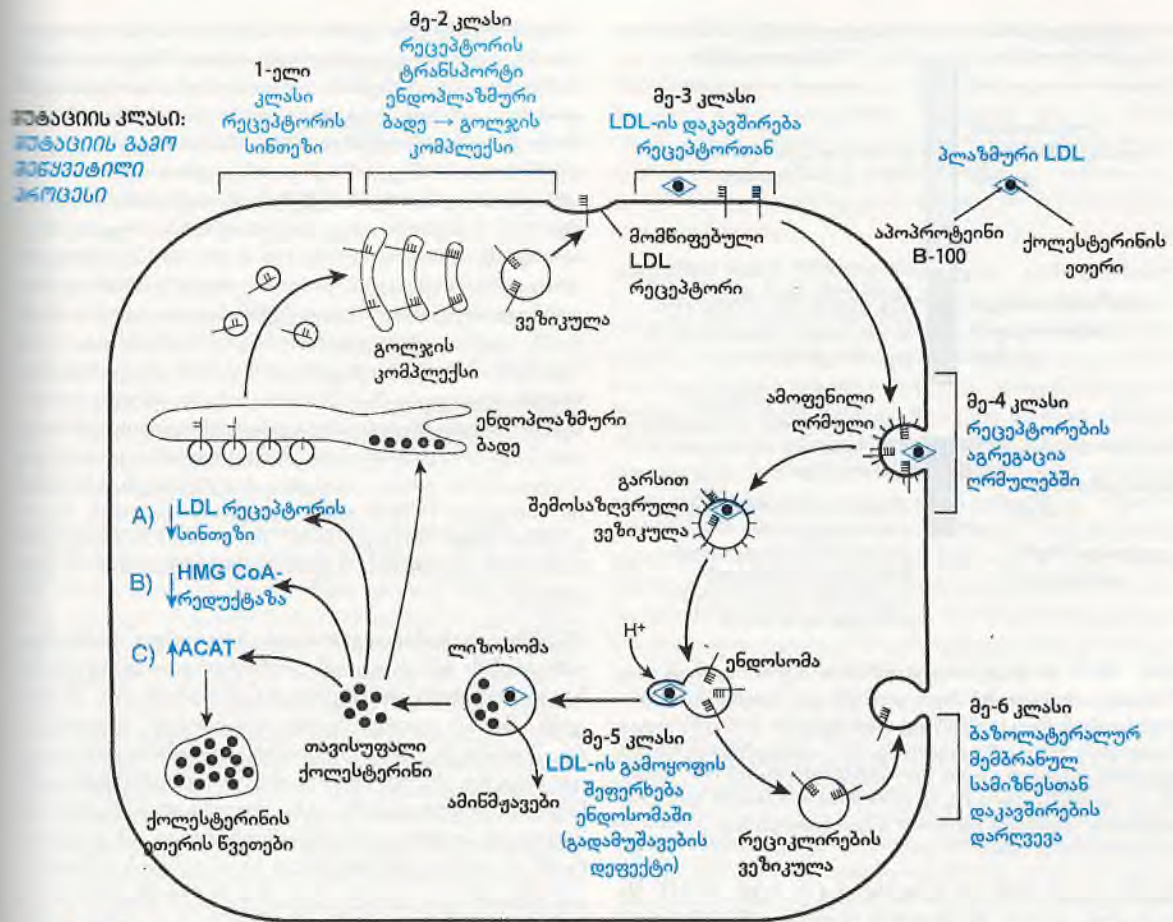 მუტაციის კლასი:
მუტაციის გამო
შეწყვეტილი
პროცესი
1-ელი
კლასი
რეცეპტორის
სინთეზი
მე-2 კლასი
რეცეპტორის
ტრანსპორტი
ენდოპლაზმური
ბადე → გოლჯის
კომპლექსი
მე-3 კლასი
LDL-ის დაკავშირება
რეცეპტორთან
პლაზმური LDL
აპოპროტეინი
B-100
ქოლესტერინის
ეთერი
მომწიფებული
LDL
რეცეპტორი
ვეზიკულა
გოლჯის
კომპლექსი
ენდოპლაზმური
ბადე
ამოფენილი
ღრმული
მე-4 კლასი
რეცეპტორების
აგრეგაცია
ღრმულებში
გარსით
შემოსაზღვრული
ვეზიკულა
A) LDL რეცეპტორის
სინთეზი
B) HMG CoA-
რედუქტაზა
C) ACAT
H+
ენდოსომა
ლიზოსომა
თავისუფალი
ქოლესტერინი
ამინმჟავები
მე-5 კლასი
LDL-ის გამოყოფის
შეფერხება
ენდოსომაში
(გადამუშავების
დეფექტი)
რეციკლირების
ვეზიკულა
მე-6 კლასი
ბაზოლატერალურ
მემბრანულ
სამიზნესთან
დაკავშირების
დარღვევა
ქოლესტერინის
ეთერის წვეთები